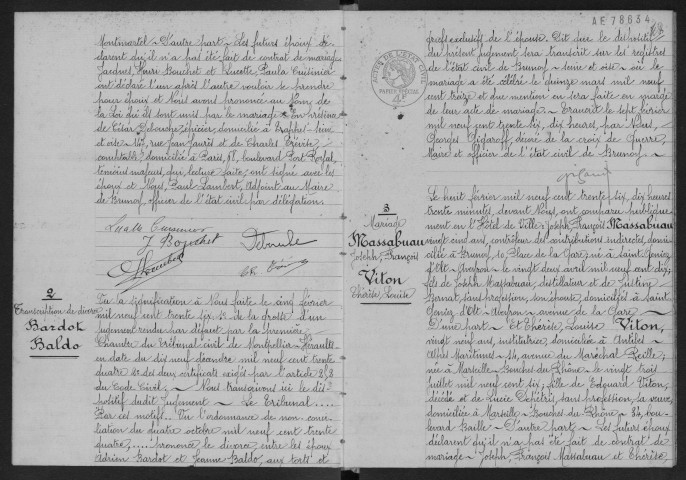 Montmartel ~ D'autre part ~ Les futurs époux dé-
clarent qu'il n'a pas été fait de contrat de mariage
Jacques Henri Bouchet et Lucette Paula
ont déclaré l'un après l'autre vouloir se prendre
pour époux et Nous avons prononcé au Nom de
la Loi qu'ils sont unis par le mariage ~ En présence
de César épicier, domicilié à
et oise 145, rue Jean Jaurès et de Charles
comptable domicilié à Paris, 68, boulevard Port Royal,
témoins majeurs, qui lecture faite, ont signé avec les
époux et Nous, Paul Lambert, Adjoint au Maire
de Brunoy officier de l'état civil par délégation.
J Bouchet
2
Transcription de divorce
Bardot
Baldo
Vu la signification à Nous faite le cinq février
mil neuf cent trente six, 1º de la grosse d'un
jugement rendu par défaut par la première
Chambre du Tribunal civil de Montpellier Hérault
en date du dix neuf décembre mil neuf cent trente
quatre 2º des deux certificats exigés par l'article 248
du Code Civil, ~ Nous transcrivons ici le dis-
positif dudit jugement ~ Le Tribunal ....
Par ces motifs ... Vu l'ordonnance de non conci-
liation du quatre octobre mil neuf cent trente
quatre, .... prononce le divorce entre les époux
Adrien Bardot et Jeanne Baldo, aux torts et
AE 78634
griefs exclusifs de l'épouse. Dit que le dispositif
du présent jugement sera transcrit sur les registres
de l'état civil de Brunoy ~ seine et oise ~ où le
mariage a été célébré le quinze mars mil neuf
cent treize et que mention en sera faite en marge
de leur acte de mariage. ~ Transcrit le sept février
mil neuf cent trente six, dix heures, par Nous,
Georges décoré de la croix de Guerre,
Maire et officier de l'état civil de Brunoy. ~
3
Mariage
Massabuau
Joseph, François
Viton
Thérèse, Louise
Le huit février mil neuf cent trente six, dix heures
trente minutes, devant Nous, ont comparu publiquement
en l'Hôtel de Ville : Joseph, François Massabuau
vingt cinq ans, contrôleur des contributions indirectes, domi-
cilié à Brunoy, 10, Place de la Gare, né à Saint Geniez
d'Olt ~ Aveyron ~ le vingt deux avril mil neuf cent dix,
fils de Joseph Massabuau, distillateur et de Justine
sans profession, son épouse, domiciliés à Saint
Geniez d'Olt ~ Aveyron ~ avenue de la Gare ~
D'une part ~ Et Thérèse, Louise Viton,
vingt neuf ans, institutrice, domiciliée à Antibes
Alpes Maritimes ~ 14, avenue du Maréchal Reille,
née à Marseille ~ Bouches du Rhône ~ le vingt trois
juillet mil neuf cent six, fille de Edouard Viton,
décédé et de Lucie sans profession, sa veuve,
domiciliée à Marseille ~ Bouches du Rhône ~ 84, bou-
levard Baille ~ D'autre part ~ Les futurs époux
déclarent qu'il n'a pas été fait de contrat de
mariage ~ Joseph, François Massabuau et Thérèse